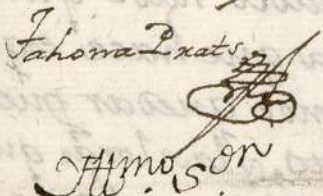 Jahoma Prats
Yllmo Sor